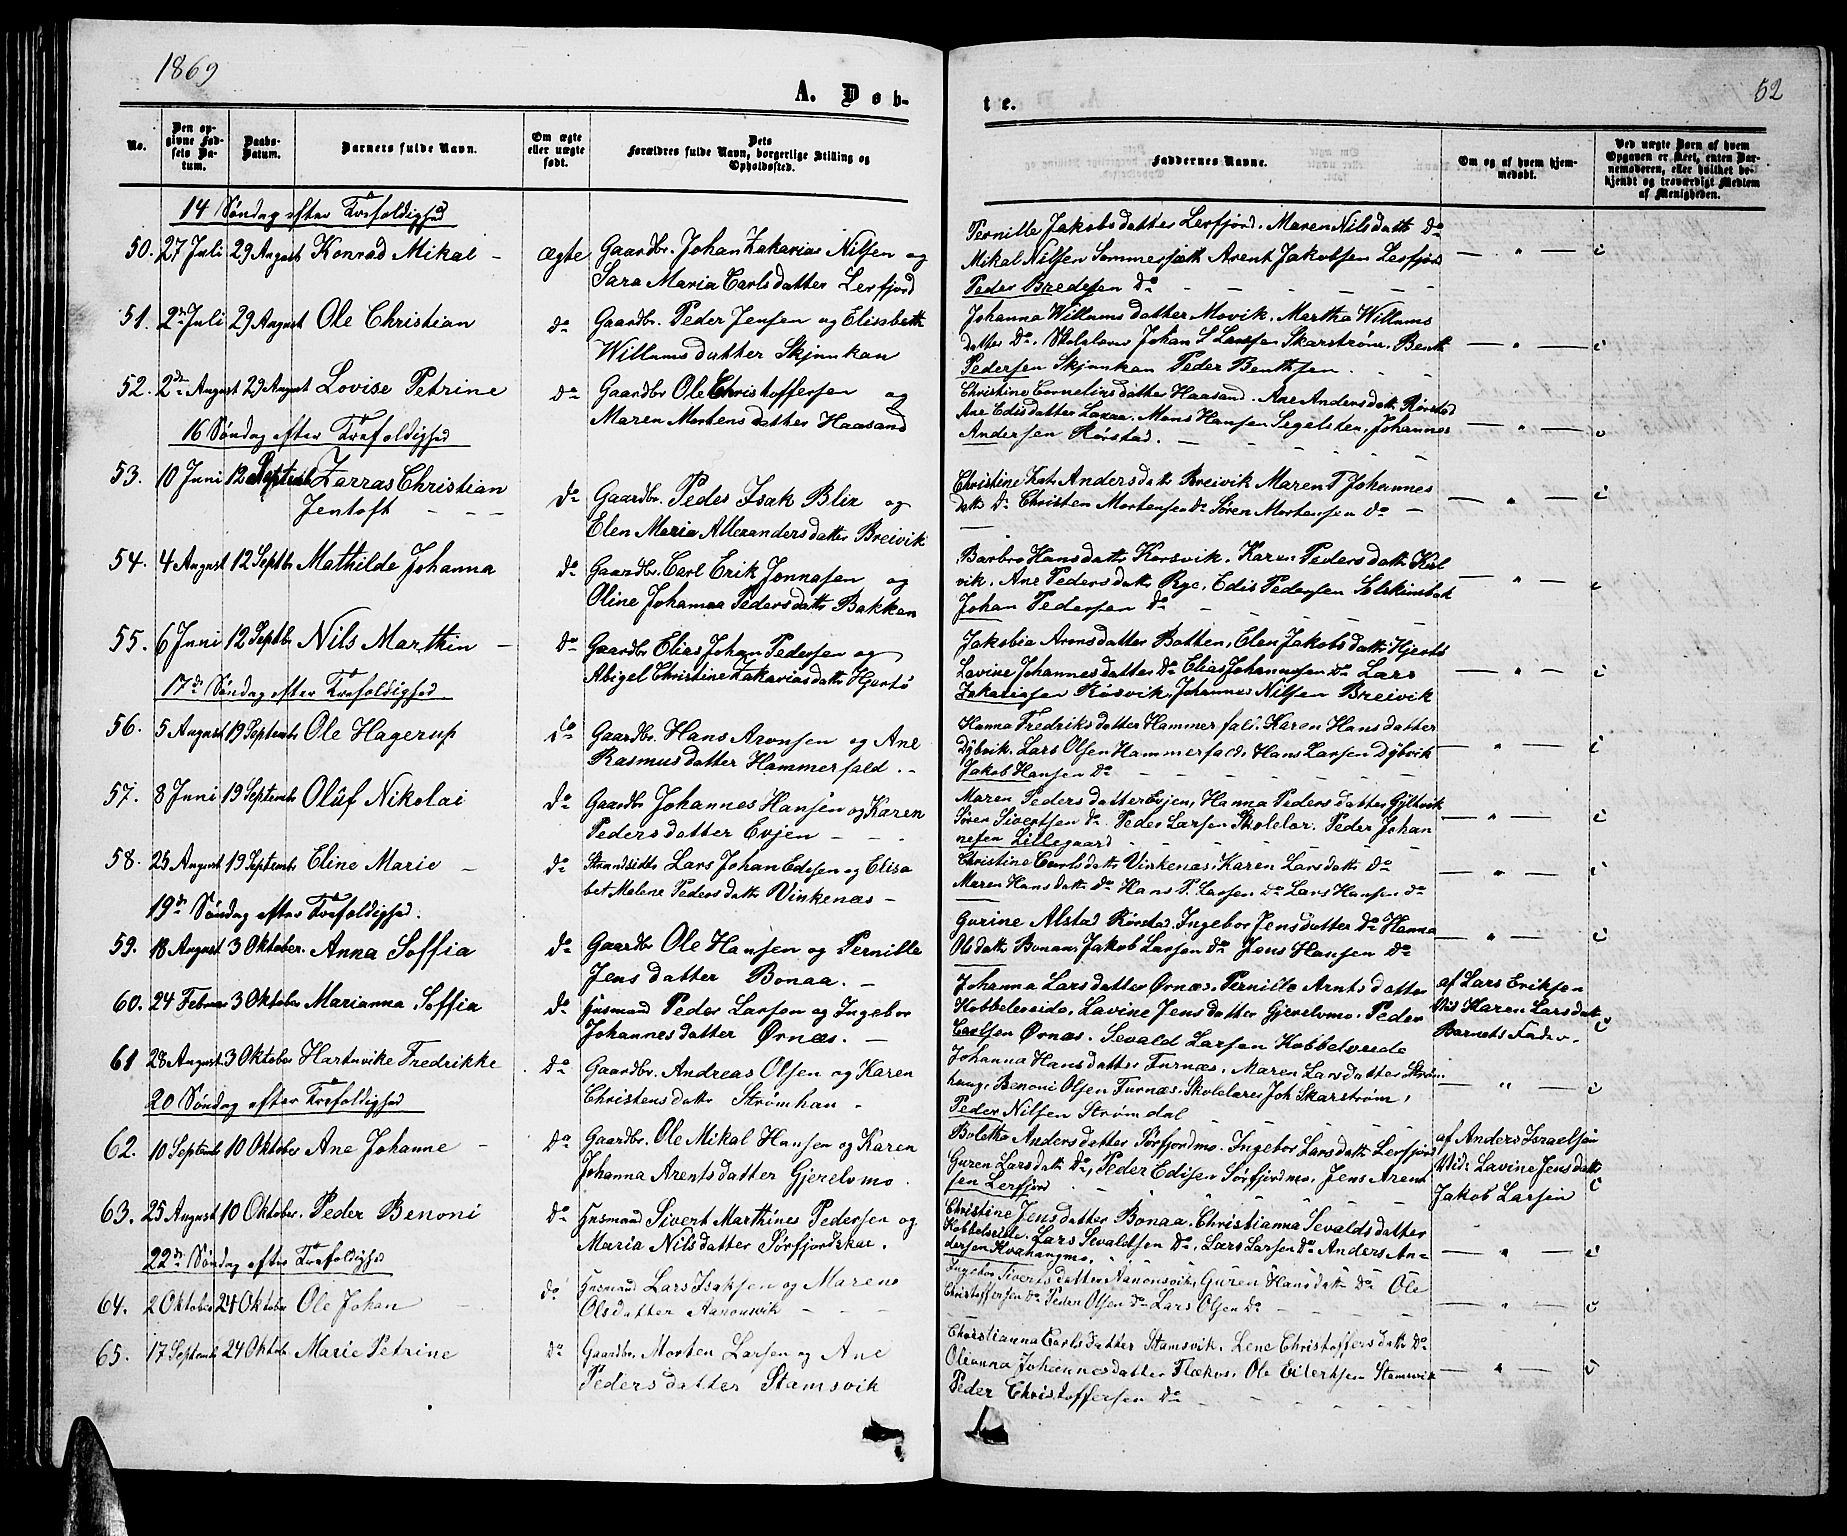 1869
A. Døb-
te.
52
No.
Den op-
givne Fød-
sels Da-
tum.
Daabs-
Datum.
Barnets fulde Navn.
Om ægte
eller uægte
født.
Dets
Forældres fulde Navn, borgerlige Stilling og
Opholdssted.
Faddernes Navne.
Om og af hvem hjem-
medøbt.
Ved uægte Børn af hvem
Opgaven er skeet, enten Bar-
nemoderen, eller hvilket be-
kjendt og troværdigt Medlem
af Menigheden.
14 Søndag efter Trefoldighed
50. 27 Juli 29 August Konrad Mikal - ægte
Gaardbr. Johan Zakarias Nilsen og
Sara Maria Carlsdatter Lerfjord
Pernille Jakobsdatter Lerfjord. Maren Nilsdatt Do
Mikal Nilsen Sommersæth Arent Jakobsen Lerfjord
Peder Bredesen Do
51. 2 Juli 29 August Ole Christian do
Gaardbr. Peder Jensen og Elisabeth
Willumsdatter Skjunkan
Johanna Willumsdatter Movik. Martha Willums
datter Do. Skolelærer Johan S Larsen Skarstrøm. Benth
Pedersen Skjunkan Peder Benthsen.
52. 2den August 29 August Lovise Petrine do
Gaardbr Ole Christoffersen og
Maren Mortensdatter Haasand
Christine Corneliusdatter Haasand. Ane Andersdatt Rørstad
Ane Edisdatter Laxaa. Mons Hansen Segelsten, Johannes
Andersen Rørstad.
16 Søndag efter Trefoldighed
53. 10 Juni 12 Septbr Zarras Christian
Jentoft - - - do
Gaardbr. Peder Isak Blix og
Elen Maria Allexandersdatter Breivik
Christine Kat. Andersdatt Breivik Maren T Johannes
datt Do Christen Mortensen do Søren Mortensen do -
54. 4 August 12 Septbr Mathilde Johanna do
Gaardbr. Carl Erik Jonnasen og
Oline Johanna Pedersdatt Bakken
Barbro Hansdatt Korsvik. Karen Pedersdatt Kul
vik. Ane Pedersdatt Rye, Edis Pedersen Solskinsbak
Johan Pedersen Do
55. 6 Juni 12 Septbr Nils Marthin - do
Gaardbr Elias Johan Pedersen og
Abigel Christine Zakariasdatt Hjertø
Jakobia Aronsdatter Botten, Elen Jakobsdatt Hjertø
Lavine Johannesdatter Do Elias Johannesen do Lars
Zakariasen Røsvik, Johannes Nilsen Breivik
17de Søndag efter Trefoldighed
56. 5 August 19 Septembr Ole Hagerup do
Gaardbr. Hans Aronsen og Ane
Rasmusdatter Hammerfald. -
Hanna Fredriksdatter Hammerfal. Karen Hansdatter
Dybvik. Lars Olsen Hammerfald. Hans Larsen Dybvik
Jakob Hansen Do
57. 8 Juni 19 Septembr Oluf Nikolai do
Gaardbr Johannes Hansen og Karen
Pedersdatter Evjen - - -
Maren Pedersdatter Evjen, Hanna Pedersdatter Gyltvik
Søren Sivertsen do Peder Larsen Skolelær. Peder Johan
nesen Lillegaard
58. 25 August 19 Septembr Eline Marie - do
Strandsidder Lars Johan Edisen og Elisa
bet Malene Pedersdatt Vinkenæs -
Christine Carlsdatt Vinkenæs, Karen Larsdatt do
Maren Hansdatt do Hans P. Larsen do Lars Hansen do
19de Søndag efter Trefoldighed.
59. 18 August 3 Oktober. Anna Soffia do
Gaardbr Ole Hansen og Pernille
Jensdatter Bonaa. -
Gurine Alstad Rørstad, Ingebor Jensdatter do Hanna
Olsdatt Bonaas Jakob Larsen do Jens Hansen Do
60. 24 Februar 3 Oktober Marianna Soffia do
Husmand Peder Larsen og Ingebor
Johannesdatter Ørnæs. -
Johanna Larsdatter Ørnæs. Pernille Arntsdatter
Kobbeleveide, Lavine Jensdatter Gjerelvmo. Peder
Carlsen Ørnæs. Sevald Larsen Kobbelveide
af Lars Eriksen
Vid Karen Larsdatt
Barnets Fader
61 28 August 3 Oktober Hartvikke Fredrikke do
Gaardbr. Andreas Olsen og Karen
Christensdatt Strømhau -
Johanna Hansdatter Furnæs. Maren Larsdatter Strøm
haug. Benoni Olsen Furnæs. Skolelærer Joh Skarstrøm,
Peder Nilsen Strømdal
20 Søndag efter Trefoldighed
62. 10 Septembr 10 Oktober Ane Johanne - do
Gaardbr. Ole Mikal Hansen og Karen
Johanna Arentsdatter Gjerelvmo.
Boletha Andersdatter Sørfjordmo. Ingebor Larsdatt Lerfjord
Guren Larsdatt Do, Peder Edisen Sørfjordmo, Jens Arent
sen Lerfjord
af Anders Israelsen
Vid: Lavine Jensdatt
Jakob Larsen
63. 25 August 10 Oktober. Peder Benoni do
Husmand Sivert Marthines Pedersen og
Maria Nilsdatter Sørfjordskar.
Christine Jensdatter Bonaa. Christianna Sevaldsdatter
Kobbelveide. Lars Sevaldsen Do, Lars Larsen Do Anders An-
dersen Kvahangmo.
22de Søndag efter Trefoldighed
64. 2 Oktober 24 Oktobr Ole Johan - do
Husmand Lars Isaksen og Maren
Olsdatter Aanonsvik - -
Ingebor Sivertsdatter Aanonsvik, Guren Hansdatt do Ole
Christoffersen do Peder Olsen do Lars Olsen Do
65. 17 Septembr 24 Oktobr Marie Petrine do
Gaardbr. Morten Larsen og Ane
Pedersdatter Stamsvik
Christianna Carlsdatter Stamsvik, Lene Christoffersdatt Do
Olianna Johannesdatter Flækvs. Ole Eilertsen Stamsvik
Peder Christoffersen Do